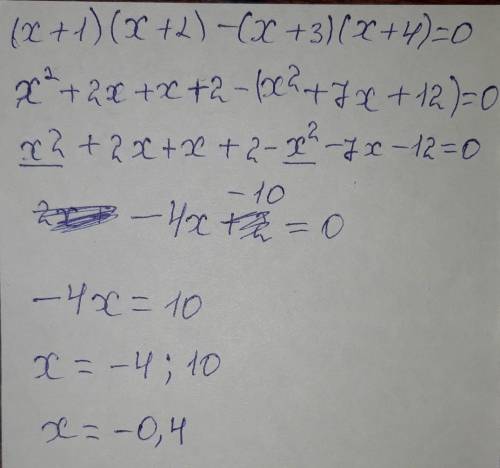 (x+1)(x+2)-(x+3)(x+4)=0
x²+2x+x+2-(x²+7x+12)=0
x²+2x+x+2-x²-7x-12=0
-4x-10=0
-4x=10
x=-4;10
x=-0,4